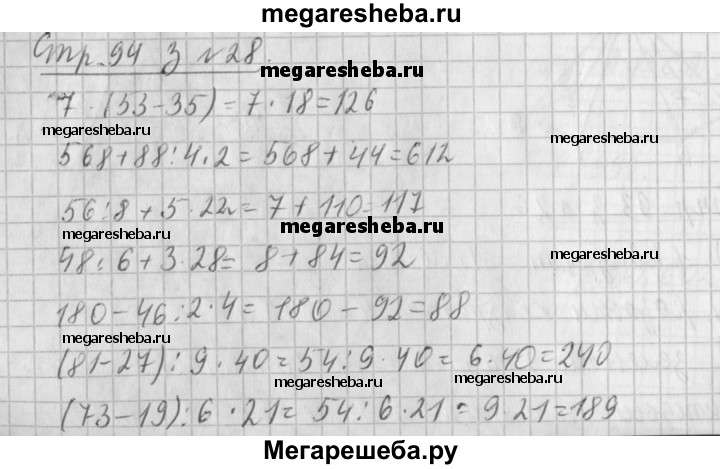 megaresheba.ru
Стр. 94 з №28.
megaresheba.ru
7 · (53-35) = 7 · 18 = 126
megaresheba.ru
megaresheba.ru
568 + 88 : 4 · 2 = 568 + 44 = 612
56 : 8 + 5 · 22 = 7 + 110 = 117
megaresheba.ru
megaresheba.ru
48 : 6 + 3 · 28 = 8 + 84 = 92
megaresheba.ru
180 - 46 : 2 · 4 = 180 - 92 = 88
megaresheba.ru
(81-27) : 9 · 40 = 54 : 9 · 40 = 6 · 40 = 240
megaresheba.ru
megaresheba.ru
(73-19) : 6 · 21 = 54 : 6 · 21 = 9 · 21 = 189
Мегарешеба.ру